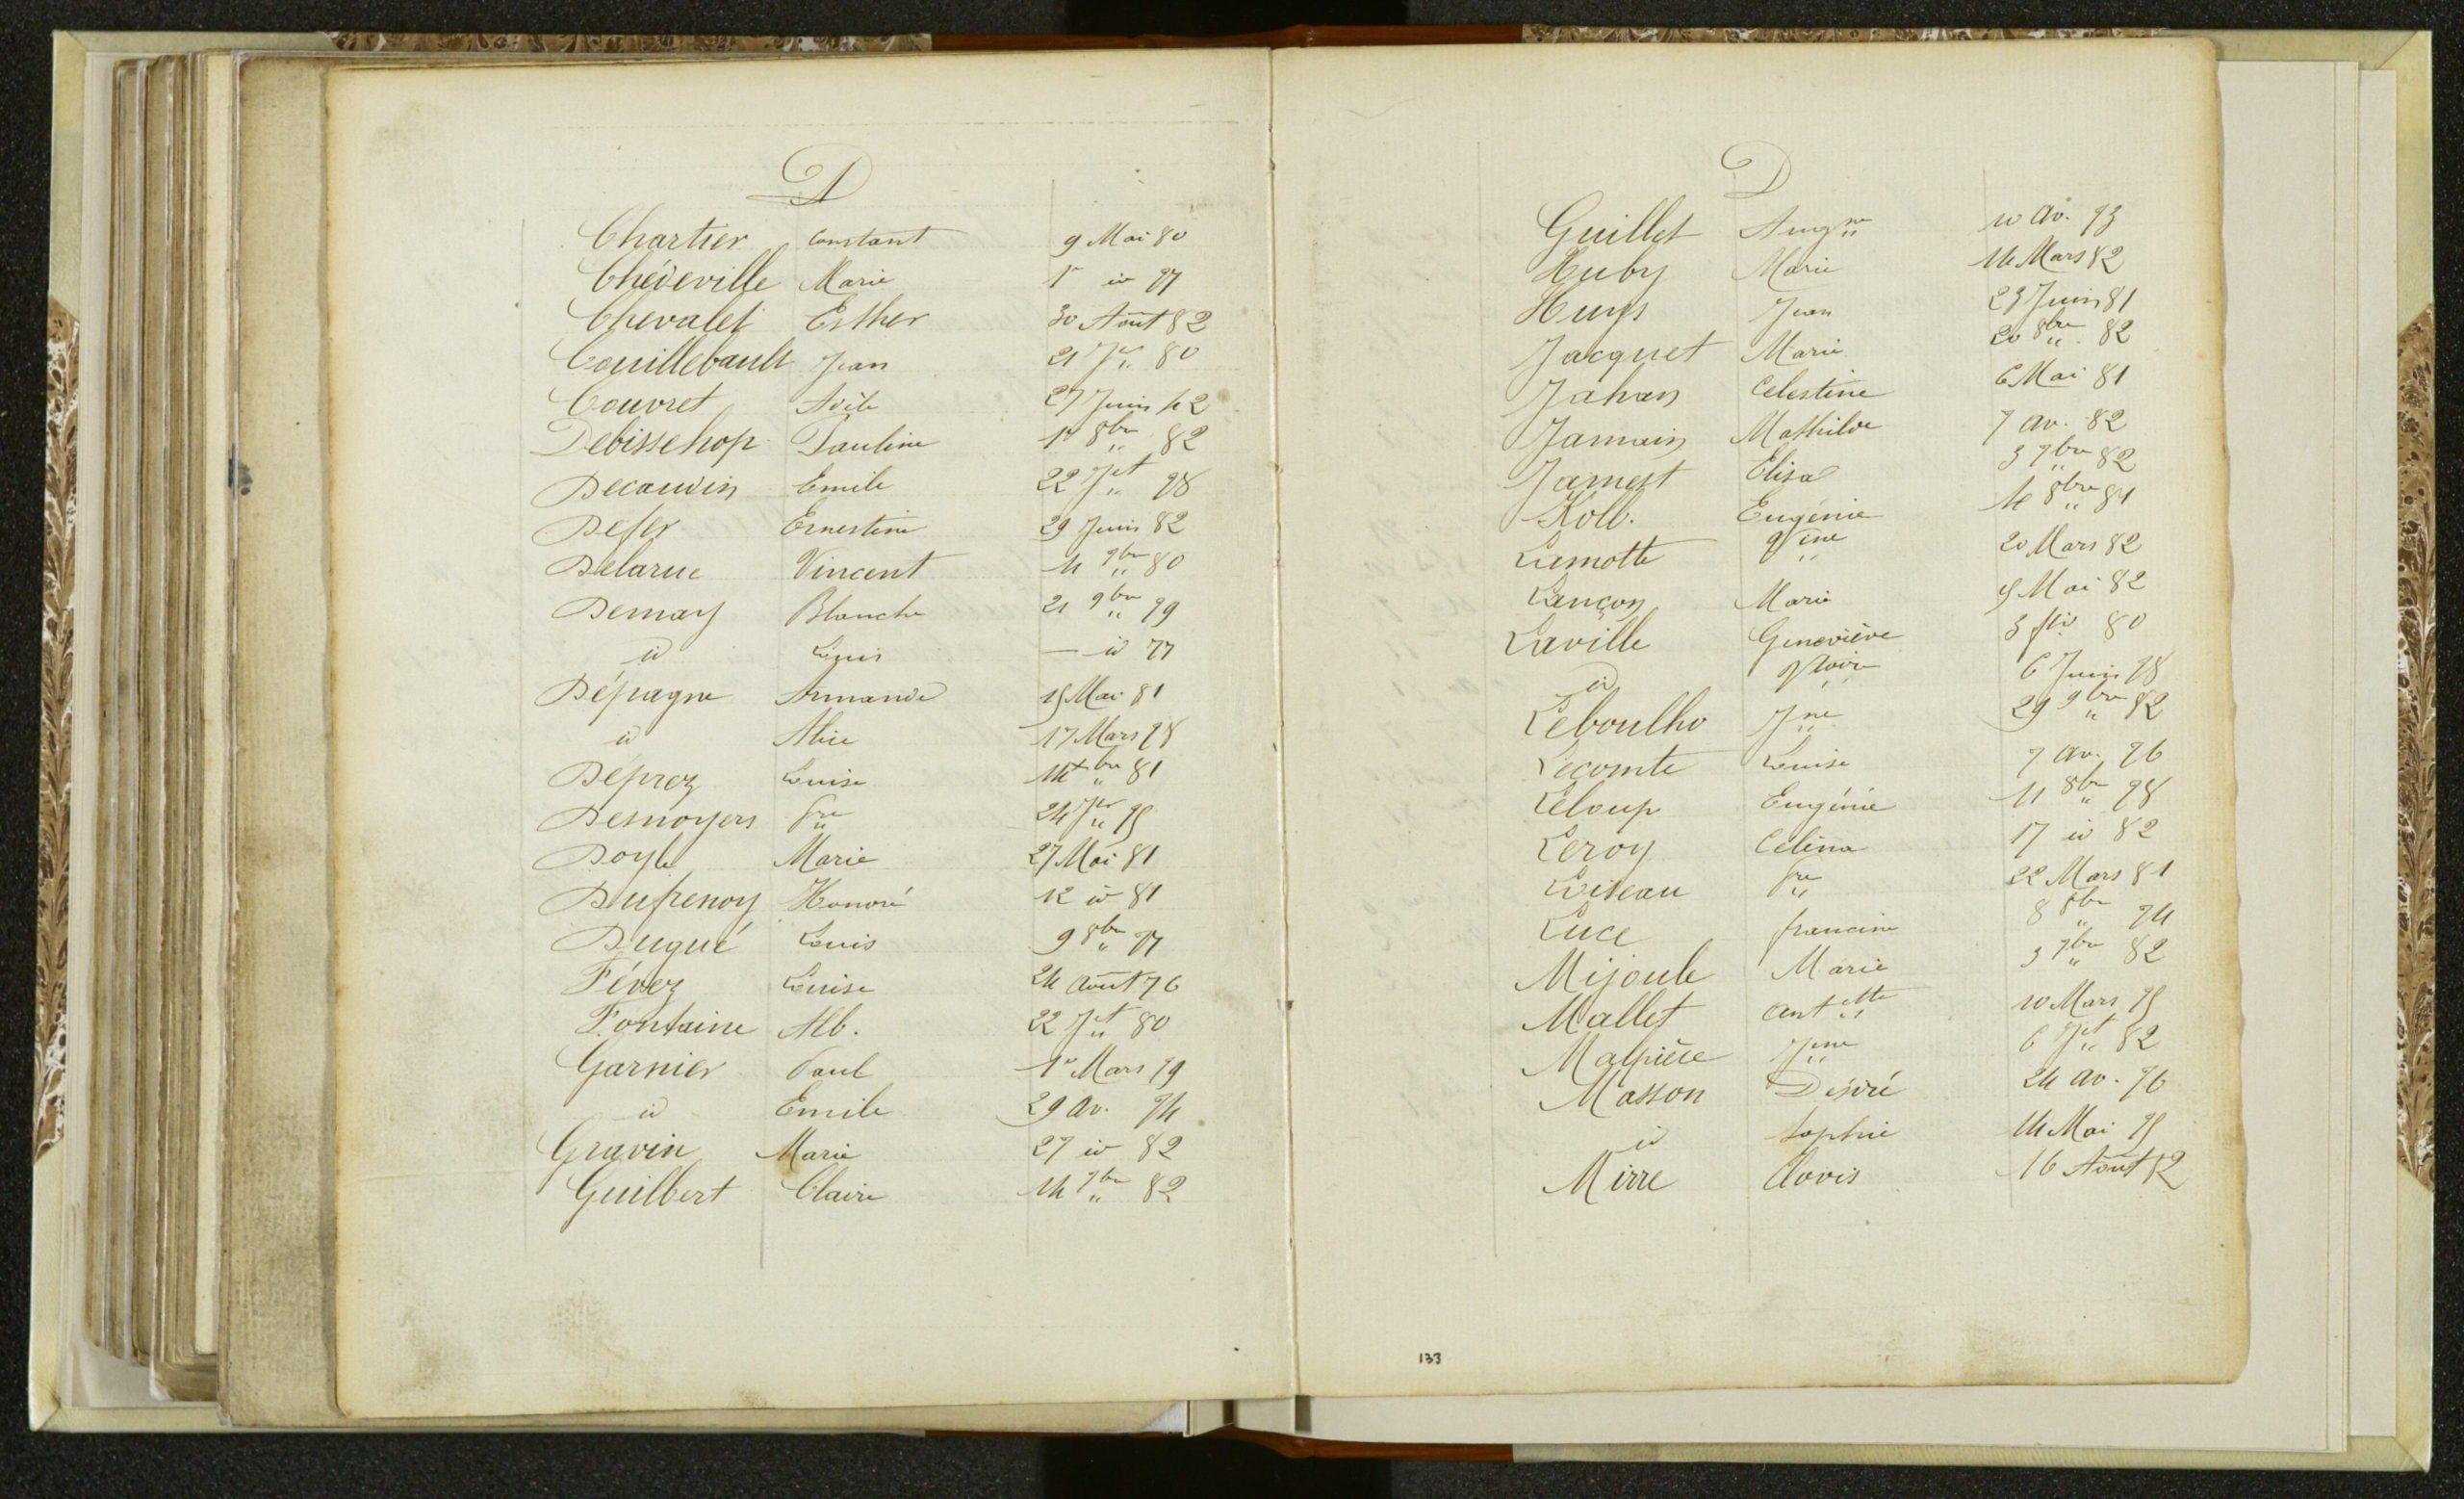 D
Chartier Constant 9 Mai 80
Chédeville Marie 1er id 77
Chevalet Esther 30 Août 82
Couillebault Jean 21 Jer 80
Couvret Adèle 27 Juin 82
Debisschop Pauline 1er 8bre 82
Decauvin Emile 22 Jet 78
Defer Ernestine 29 Juin 82
Delarue Vincent 11 9bre 80
Demay Blanche 21 9bre 79
id Louis — id 77
Dépagne Armande 15 Mai 81
id Alice 17 Mars 78
Deprez Louise 14 Xbre 81
Desnoyers fre 24 Jer 75
Doyle Marie 27 Mai 81
Dufrenoy Honoré 12 id 81
Dugué Louis 9 8bre 77
Févez Louise 24 août 76
Fontaine Alb. 22 Jet 80
Garnier Paul 1er Mars 79
id Emile 29 av. 74
Gravin Marie 27 id 82
Guilbert Claire 14 7bre 82
D
Guillet Augne 10 av. 73
Huby Marie 14 Mars 82
Huys Jean 23 Juin 81
Jacquet Marie 20 8bre 82
Jahan Celestine 6 Mai 81
Jamain Mathilde 7 av. 82
Jamest Elisa 3 7bre 82
Kolb. Eugénie 14 8bre 81
Lamotte 20 Mars 82
Lançon Marie 9 Mai 82
Laville Geneviève 3 80
id 6 Juin 78
Leboulho Jne 29 9bre 82
Lecomte Louise 7 av. 76
Leloup Eugénie 11 8bre 78
Leroy Célina 17 id 82
Loiseau fre 22 Mars 81
Luce francine 8 8bre 74
Mijoule Marie 3 7bre 82
Mallet antette 10 Mars 75
Malpièce Jene 6 Jet 82
Masson Désiré 24 av. 76
id Sophie 14 Mai 75
Mirre Clovis 16 Août 82
133